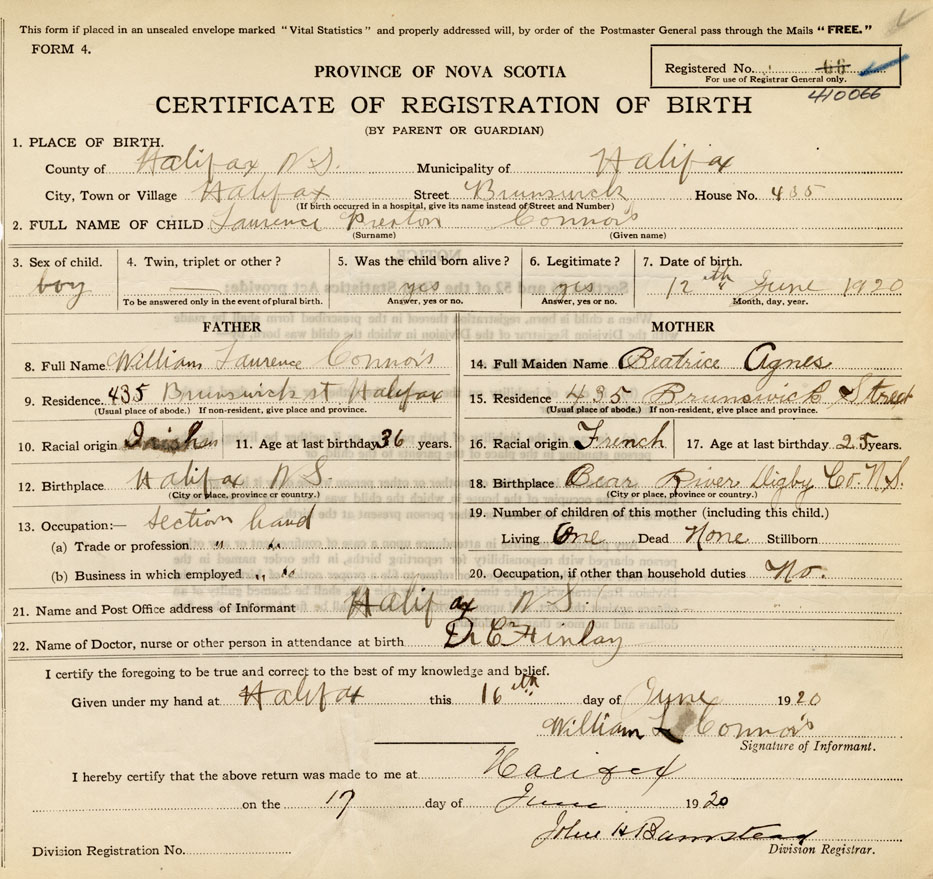 This form if placed in an unsealed envelope marked "Vital Statistics" and properly addressed will, by order of the Postmaster General pass through the Mails "FREE."
FORM 4.
Registered No. 66
For use of Registrar General only.
410066
PROVINCE OF NOVA SCOTIA
CERTIFICATE OF REGISTRATION OF BIRTH
(BY PARENT OR GUARDIAN)
1. PLACE OF BIRTH.
County of Halifax N.S. Municipality of Halifax
City, Town or Village Halifax Street Brunswick House No. 435
(If birth occurred in a hospital, give its name instead of Street and Number)
2. FULL NAME OF CHILD Laurence Preston Connors
(Surname) (Given name)
3. Sex of child. 4. Twin, triplet or other? 5. Was the child born alive? 6. Legitimate? 7. Date of birth.
boy yes yes 12th June 1920
To be answered only in the event of plural birth. Answer, yes or no. Answer, yes or no. Month, day, year.
FATHER MOTHER
8. Full Name William Laurence Connors 14. Full Maiden Name Beatrice Agnes
9. Residence. 435 Brunswick st Halifax 15. Residence 435 Brunswick Street
(Usual place of abode.) If non-resident, give place and province. (Usual place of abode.) If non-resident, give place and province.
10. Racial origin Irish 11. Age at last birthday 36 years. 16. Racial origin French 17. Age at last birthday 25 years.
12. Birthplace Halifax N.S. 18. Birthplace Bear River Digby Co. N.S.
(City or place, province or country.) (City or place, province or country.)
13. Occupation:— section hand 19. Number of children of this mother (including this child.)
(a) Trade or profession " " Living One Dead None Stillborn
(b) Business in which employed " " 20. Occupation, if other than household duties No.
21. Name and Post Office address of Informant Halifax N S.
22. Name of Doctor, nurse or other person in attendance at birth Dr C Finlay
I certify the foregoing to be true and correct to the best of my knowledge and belief.
Given under my hand at Halifax this 16th day of June 1920
William L Connors
Signature of Informant.
I hereby certify that the above return was made to me at Halifax
on the 17 day of June 1920
John H Barnstead
Division Registration No. Division Registrar.